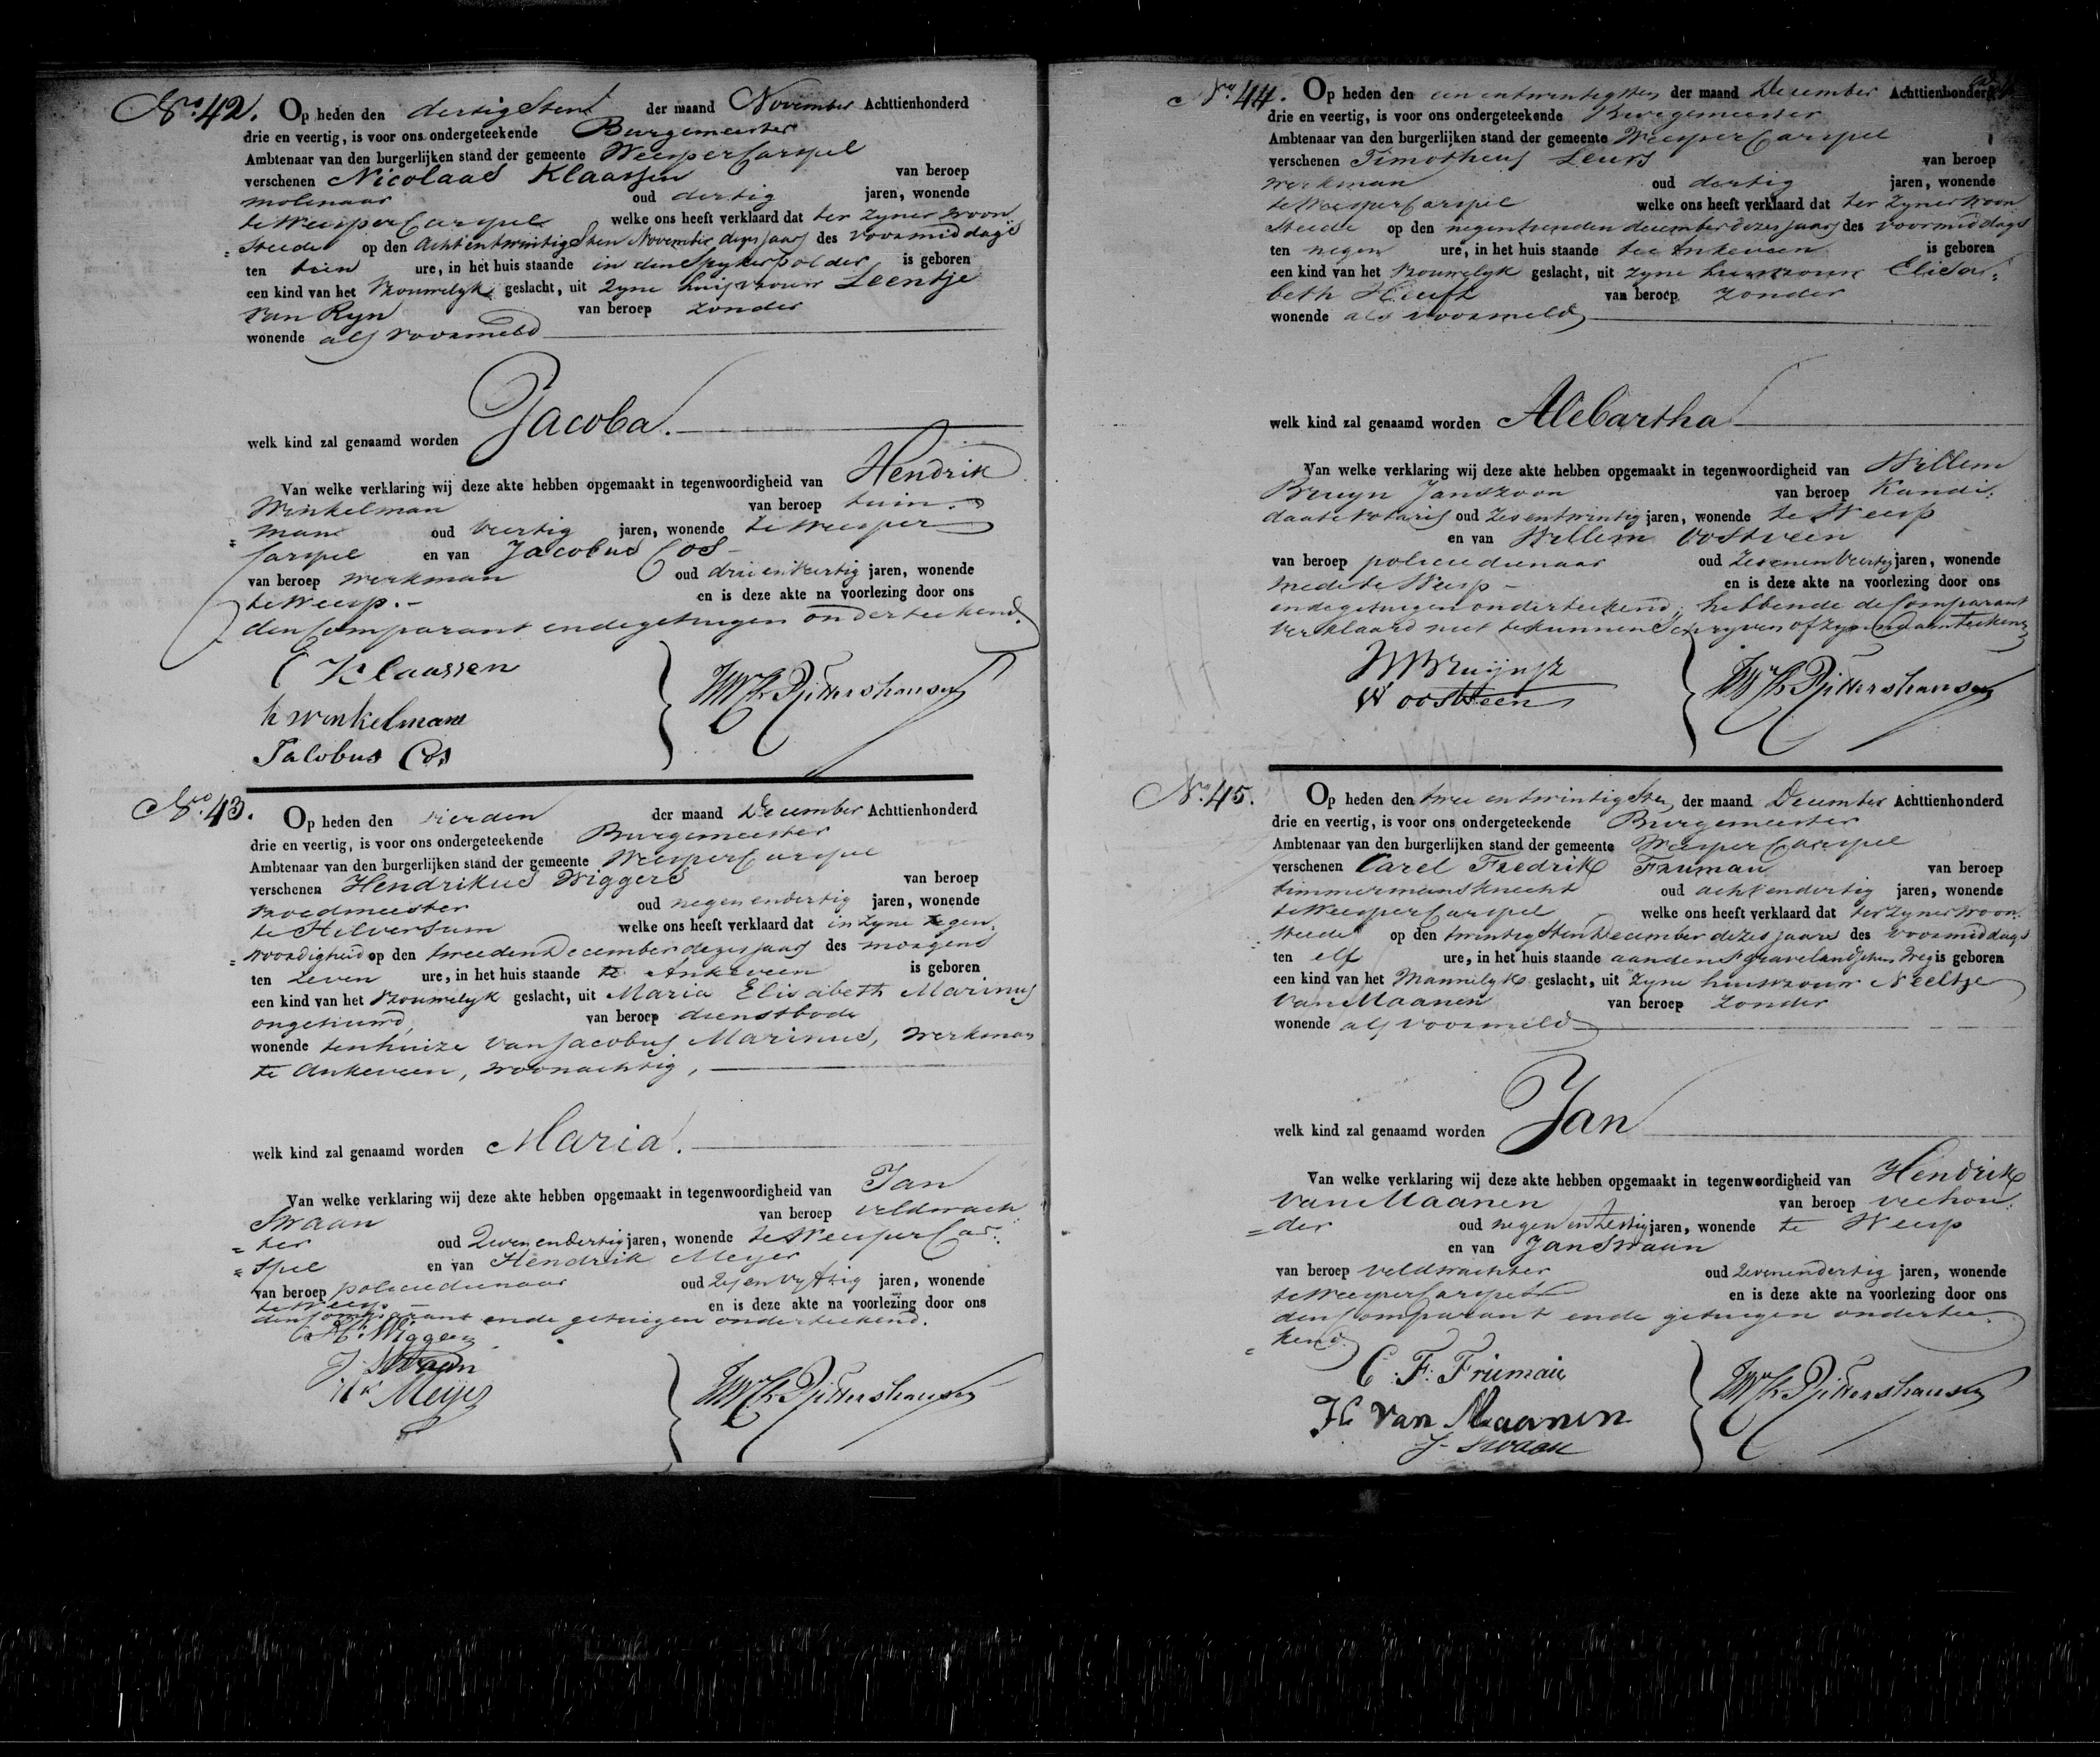 No. 42. Op heden den dertigsten der maand November Achttienhonderd
drie en veertig, is voor ons ondergeteekende Burgemeester
Ambtenaar van den burgerlijken stand der gemeente WeesperCarspel
verschenen Nicolaas Klaassen van beroep
molenaar oud dertig jaren, wonende
te WeesperCarspel welke ons heeft verklaard dat ter zyner woon
= steede op den achtentwintigsten November dezes jaars des voormiddags
ten tien ure, in het huis staande in den Spykerpolder is geboren
een kind van het vrouwelyk geslacht, uit zyne huisvrouw Leentje
van Ryn van beroep zonder
wonende als voormeld
welk kind zal genaamd worden Jacoba.
Van welke verklaring wij deze akte hebben opgemaakt in tegenwoordigheid van Hendrik
Winkelman van beroep tuin=
= man oud veertig jaren, wonende te Weesper
Carspel en van Jacobus Cos
van beroep werkman oud drie en veertig jaren, wonende
te Weesp. en is deze akte na voorlezing door ons
den Comparant en de getuigen onderteekend.
C Klaassen
h winkelman
Jacobus Cos
No. 43. Op heden den vierden der maand December Achttienhonderd
drie en veertig, is voor ons ondergeteekende Burgemeester
Ambtenaar van den burgerlijken stand der gemeente WeesperCarspel
verschenen Hendrikus Wiggers van beroep
vroedmeester oud negenendertig jaren, wonende
te Hilversum welke ons heeft verklaard dat in zyne tegen=
= woordigheid op den tweeden December dezes jaars des morgens
ten zeven ure, in het huis staande te Ankeveen is geboren
een kind van het vrouwelyk geslacht, uit Maria Elisabeth Marinus
ongehuwd, van beroep dienstbode
wonende ten huize van Jacobus Marinus, werkman
te Ankeveen, woonachtig,
welk kind zal genaamd worden Maria.
Van welke verklaring wij deze akte hebben opgemaakt in tegenwoordigheid van Jan
Swaan van beroep veldwach
= ter oud zevenendertig jaren, wonende te WeesperCar=
= spel en van Hendrik Meyer
van beroep policiedienaar oud zesenvyftig jaren, wonende
te Weesp en is deze akte na voorlezing door ons
den Comparant en de getuigen onderteekend.
H. Wiggers
J. Swaan
Hk Meijer
No. 44. Op heden den eenentwintigsten der maand December Achttienhonderd
drie en veertig, is voor ons ondergeteekende Burgemeester
Ambtenaar van den burgerlijken stand der gemeente WeesperCarspel
verschenen Timotheus Leurs van beroep
werkman oud dertig jaren, wonende
te WeesperCarspel welke ons heeft verklaard dat ter zyner woon
steede op den negentienden december dezes jaars des voormiddags
ten negen ure, in het huis staande te Ankeveen is geboren
een kind van het vrouwelyk geslacht, uit zyne huisvrouw Elisa=
beth van beroep zonder
wonende als voormeld
welk kind zal genaamd worden Alebartha
Van welke verklaring wij deze akte hebben opgemaakt in tegenwoordigheid van Willem
Bruyn Janszoon van beroep Kandi=
daat Notaris oud zesentwintig jaren, wonende te Weesp
en van Willem Oostveen
van beroep policiedienaar oud zevenenveertig jaren, wonende
mede te Weesp en is deze akte na voorlezing door ons
en de getuigen onderteekend; hebbende de Comparant
verklaard niet te kunnen schryven of zyn naam teekenen
W Bruijn Jz
W oostveen
No. 45. Op heden den twee entwintigsten der maand December Achttienhonderd
drie en veertig, is voor ons ondergeteekende Burgemeester
Ambtenaar van den burgerlijken stand der gemeente WeesperCarspel
verschenen Carel Fredrik Frumau van beroep
timmermansknecht oud achtendertig jaren, wonende
te WeesperCarspel welke ons heeft verklaard dat ter zyner woon=
= steede op den twintigsten December dezes jaars des voormiddags
ten elf ure, in het huis staande aan den s'Gravelandschen weg is geboren
een kind van het Mannelyk geslacht, uit zyne huisvrouw Neeltje
van Maanen van beroep zonder
wonende als voormeld
welk kind zal genaamd worden Jan
Van welke verklaring wij deze akte hebben opgemaakt in tegenwoordigheid van Hendrik
van Maanen van beroep veehou=
= der oud negen en zestig jaren, wonende te Weesp
en van Jan Swaan
van beroep veldwachter oud zevenendertig jaren, wonende
te WeesperCarspel en is deze akte na voorlezing door ons
den Comparant en de getuigen ondertee=
= kend
C: F: Frumau
H van Maanen
J. swaan